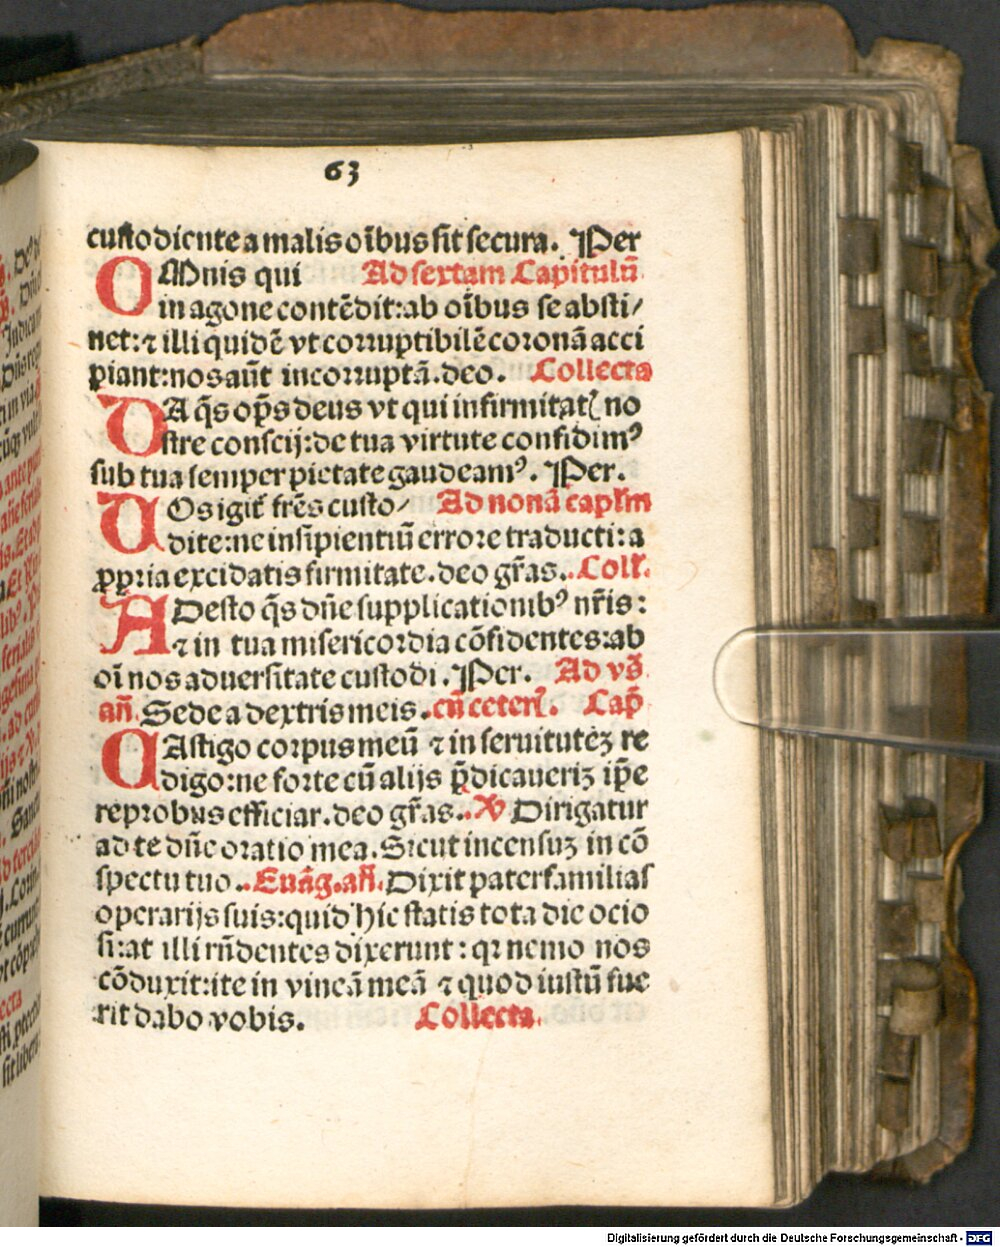 63
custodiente a malis oībus sit secura. Per
OMnis qui Ad sextam Capitulū
in agone contēdit: ab oībus se absti/
net: ⁊ illi quidē vt corruptibilē coronā acci
piant: nos aūt incorruptā. deo. Collecta
DA q̄s op̄s deus vt qui infirmitatꝭ no
stre conscij: de tua virtute confidimꝰ
sub tua semper pietate gaudeamꝰ. Per.
VOs igit᷑ fr̄es custo/ Ad nonā capl̄m
dite: ne insipientiū errore traducti: a
ꝓpria excidatis firmitate. deo gr̄as. Coll̄.
ADesto q̄s dn̄e supplicationibꝰ nr̄is:
⁊ in tua misericordia cōfidentes: ab
oī nos aduersitate custodi. Per. Ad vs̄
an̄. Sede a dextris meis. cū ceterꝭ. Cap̄
CAstigo corpus meū ⁊ in seruitutēꝫ re
digo: ne forte cū alijs p̄dicaueriꝫ ip̄e
reprobus efficiar. deo gr̄as. ℣ Dirigatur
ad te dn̄e oratio mea. Sicut incensuꝫ in cō
spectu tuo. Euāg. an̄. Dixit paterfamilias
operarijs suis: quid hic statis tota die ocio
si: at illi rn̄dentes dixerunt: qꝛ nemo nos
cōduxit: ite in vineā meā ⁊ quod iustū fue
rit dabo vobis. Collecta.
Digitalisierung gefördert durch die Deutsche Forschungsgemeinschaft - DFG